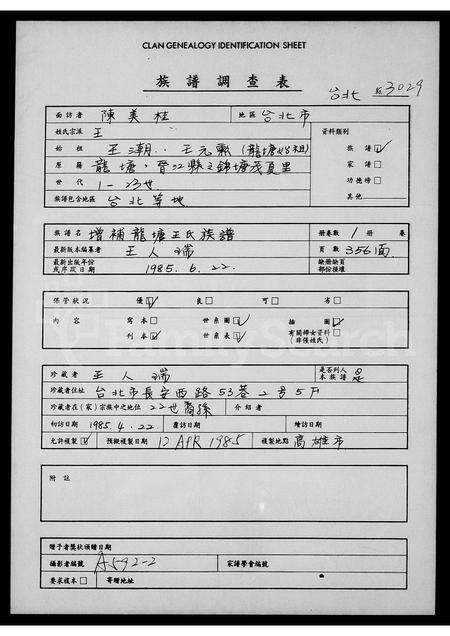 CLAN GENEALOGY IDENTIFICATION SHEET
族譜調查表
台北 3029
面訪者 陳美桂 地區 台北市
姓氏宗派 王 資料類別
始祖 王潮、王元 (龍塘始祖) 族譜 ✓
原籍 龍塘，晉江縣 家譜 □
世代 1-23世 功德榜 □
族譜包含地區 台北等地 其他
族譜名 增補龍塘王氏族譜 册卷數 1 册 卷
最新版本編纂者 王人瑞 頁數 356面
最新出版年份或序跋日期 1985.6.22. 缺册缺頁部份後壞
保管狀況 優 ✓ 良 □ 可 □ 劣 □
內容 寫本 □ 世系圖 ✓ 插圖 ✓
刊本 ✓ 世系表 ✓ 有關婦女資料 □ (非僅姓氏)
珍藏者 王人瑞 是否列入本族譜 是
珍藏者住址 台北市長安西路53巷2号5F
珍藏者在(家)宗族中之地位 22世裔孫 介紹者
初訪日 1985.4.22 覆訪日 續訪日
允許複製 ✓ 預擬複製日期 12 APR 1985 複製地點 高雄市
附註
贈予者獎狀頒贈日期
攝影者編號 A592-2 家譜學會編號
要求複本 □ 寄贈地址
FamilySearch